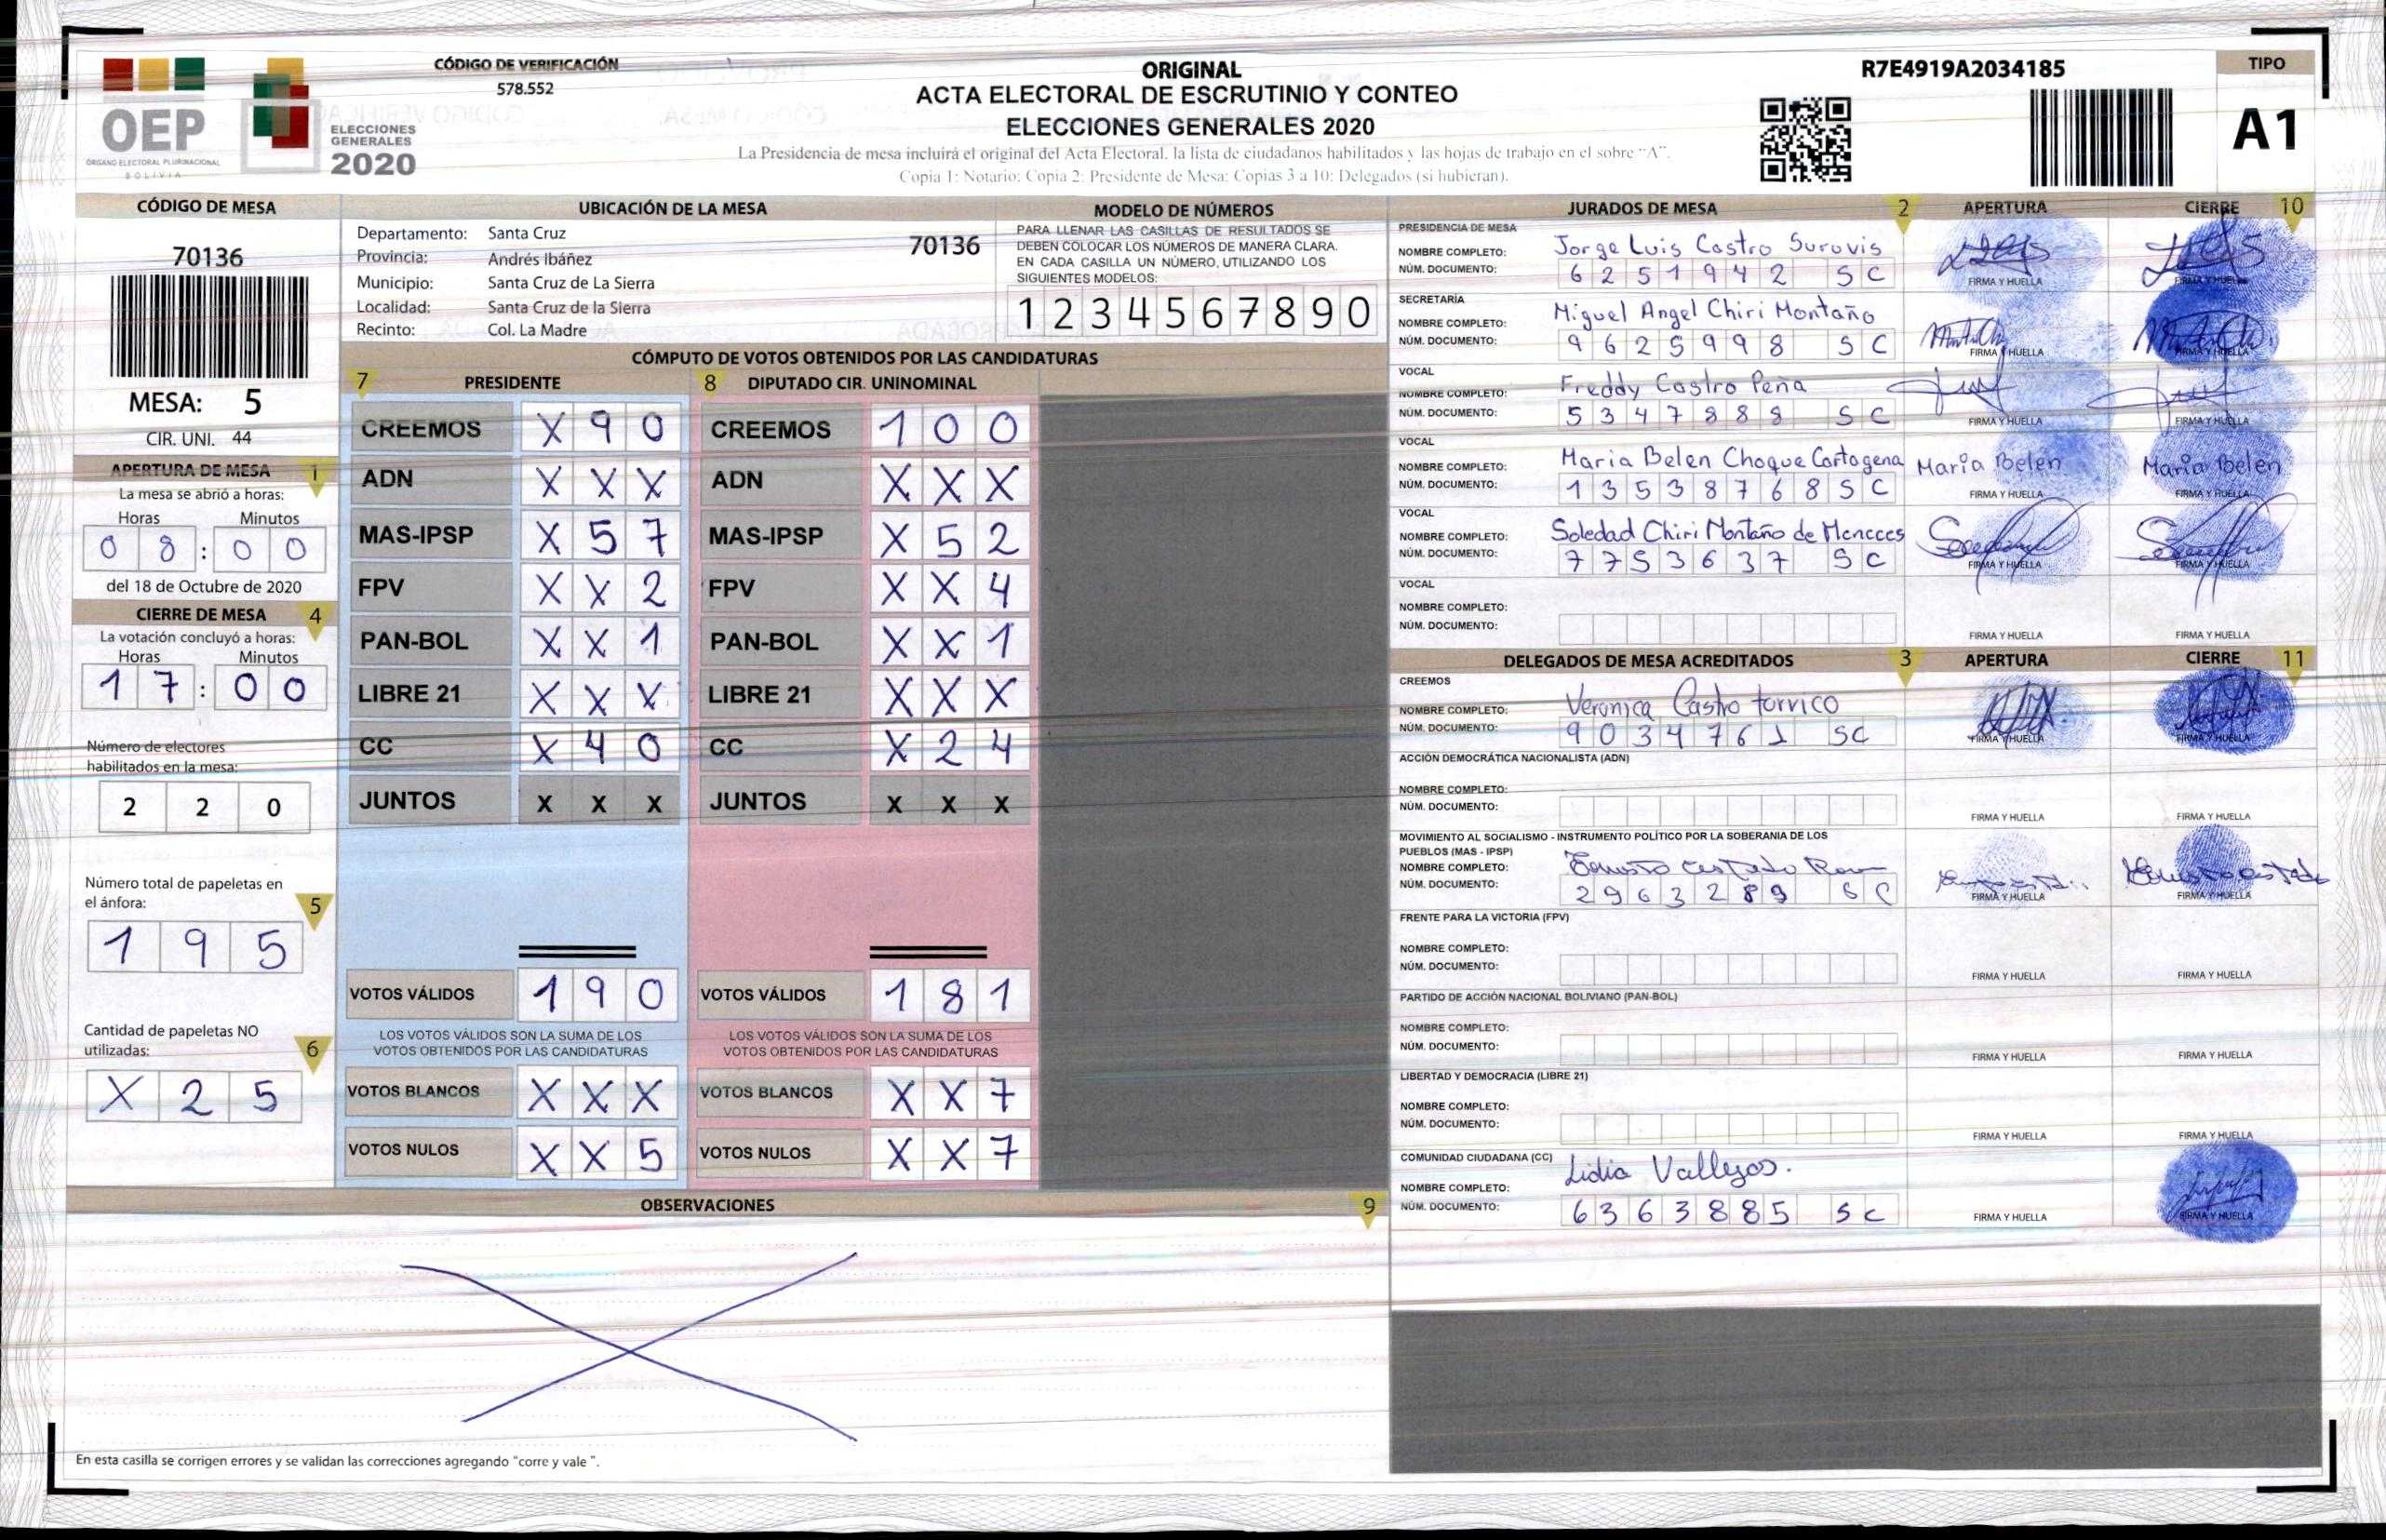 OEP
ÓRGANO ELECTORAL PLURINACIONAL
BOLIVIA
ELECCIONES
GENERALES
2020
CÓDIGO DE VERIFICACIÓN
578.552
ORIGINAL
ACTA ELECTORAL DE ESCRUTINIO Y CONTEO
ELECCIONES GENERALES 2020
La Presidencia de mesa incluirá el original del Acta Electoral, la lista de ciudadanos habilitados y las hojas de trabajo en el sobre "A".
Copia 1: Notario; Copia 2: Presidente de Mesa; Copias 3 a 10: Delegados (si hubieran).
R7E4919A2034185
TIPO
A1
CÓDIGO DE MESA
70136
MESA: 5
CIR. UNI. 44
APERTURA DE MESA 1
La mesa se abrió a horas:
Horas Minutos
0 8 : 0 0
del 18 de Octubre de 2020
CIERRE DE MESA 4
La votación concluyó a horas:
Horas Minutos
1 7 : 0 0
Número de electores
habilitados en la mesa:
2 2 0
Número total de papeletas en
el ánfora: 5
1 9 5
Cantidad de papeletas NO
utilizadas: 6
X 2 5
UBICACIÓN DE LA MESA
Departamento: Santa Cruz
70136
Provincia: Andrés Ibáñez
Municipio: Santa Cruz de La Sierra
Localidad: Santa Cruz de la Sierra
Recinto: Col. La Madre
MODELO DE NÚMEROS
PARA LLENAR LAS CASILLAS DE RESULTADOS SE
DEBEN COLOCAR LOS NÚMEROS DE MANERA CLARA.
EN CADA CASILLA UN NÚMERO, UTILIZANDO LOS
SIGUIENTES MODELOS:
1 2 3 4 5 6 7 8 9 0
CÓMPUTO DE VOTOS OBTENIDOS POR LAS CANDIDATURAS
7 PRESIDENTE 8 DIPUTADO CIR. UNINOMINAL
CREEMOS X 9 0 CREEMOS 1 0 0
ADN X X X ADN X X X
MAS-IPSP X 5 7 MAS-IPSP X 5 2
FPV X X 2 FPV X X 4
PAN-BOL X X 1 PAN-BOL X X 1
LIBRE 21 X X X LIBRE 21 X X X
CC X 4 0 CC X 2 4
JUNTOS X X X JUNTOS X X X
VOTOS VÁLIDOS 1 9 0 VOTOS VÁLIDOS 1 8 1
LOS VOTOS VÁLIDOS SON LA SUMA DE LOS LOS VOTOS VÁLIDOS SON LA SUMA DE LOS
VOTOS OBTENIDOS POR LAS CANDIDATURAS VOTOS OBTENIDOS POR LAS CANDIDATURAS
VOTOS BLANCOS X X X VOTOS BLANCOS X X 7
VOTOS NULOS X X 5 VOTOS NULOS X X 7
OBSERVACIONES 9
En esta casilla se corrigen errores y se validan las correcciones agregando "corre y vale ".
JURADOS DE MESA 2 APERTURA CIERRE 10
PRESIDENCIA DE MESA
NOMBRE COMPLETO: Jorge Luis Castro Surovis
NÚM. DOCUMENTO: 6 2 5 1 9 4 2 S C
FIRMA Y HUELLA FIRMA Y HUELLA
SECRETARÍA
NOMBRE COMPLETO: Miguel Angel Chiri Montaño
NÚM. DOCUMENTO: 9 6 2 5 9 9 8 S C
FIRMA Y HUELLA FIRMA Y HUELLA
VOCAL
NOMBRE COMPLETO: Freddy Castro Peña
NÚM. DOCUMENTO: 5 3 4 7 8 8 8 S C
FIRMA Y HUELLA FIRMA Y HUELLA
VOCAL
NOMBRE COMPLETO: Maria Belen Choque Cartagena Maria Belen Maria Belen
NÚM. DOCUMENTO: 1 3 5 3 8 7 6 8 S C
FIRMA Y HUELLA FIRMA Y HUELLA
VOCAL
NOMBRE COMPLETO: Soledad Chiri Montaño de Meneces
NÚM. DOCUMENTO: 7 7 5 3 6 3 7 S C
FIRMA Y HUELLA FIRMA Y HUELLA
VOCAL
NOMBRE COMPLETO:
NÚM. DOCUMENTO:
FIRMA Y HUELLA FIRMA Y HUELLA
DELEGADOS DE MESA ACREDITADOS 3 APERTURA CIERRE 11
CREEMOS
NOMBRE COMPLETO: Veronica Castro torrico
NÚM. DOCUMENTO: 9 0 3 4 7 6 1 SC
FIRMA Y HUELLA FIRMA Y HUELLA
ACCIÓN DEMOCRÁTICA NACIONALISTA (ADN)
NOMBRE COMPLETO:
NÚM. DOCUMENTO:
FIRMA Y HUELLA FIRMA Y HUELLA
MOVIMIENTO AL SOCIALISMO - INSTRUMENTO POLÍTICO POR LA SOBERANIA DE LOS
PUEBLOS (MAS - IPSP)
NOMBRE COMPLETO:
NÚM. DOCUMENTO: 2 9 6 3 2 8 9 S C
FIRMA Y HUELLA FIRMA Y HUELLA
FRENTE PARA LA VICTORIA (FPV)
NOMBRE COMPLETO:
NÚM. DOCUMENTO:
FIRMA Y HUELLA FIRMA Y HUELLA
PARTIDO DE ACCIÓN NACIONAL BOLIVIANO (PAN-BOL)
NOMBRE COMPLETO:
NÚM. DOCUMENTO:
FIRMA Y HUELLA FIRMA Y HUELLA
LIBERTAD Y DEMOCRACIA (LIBRE 21)
NOMBRE COMPLETO:
NÚM. DOCUMENTO:
FIRMA Y HUELLA FIRMA Y HUELLA
COMUNIDAD CIUDADANA (CC)
NOMBRE COMPLETO: Lidia Vallejos.
NÚM. DOCUMENTO: 6 3 6 3 8 8 5 S C
FIRMA Y HUELLA FIRMA Y HUELLA